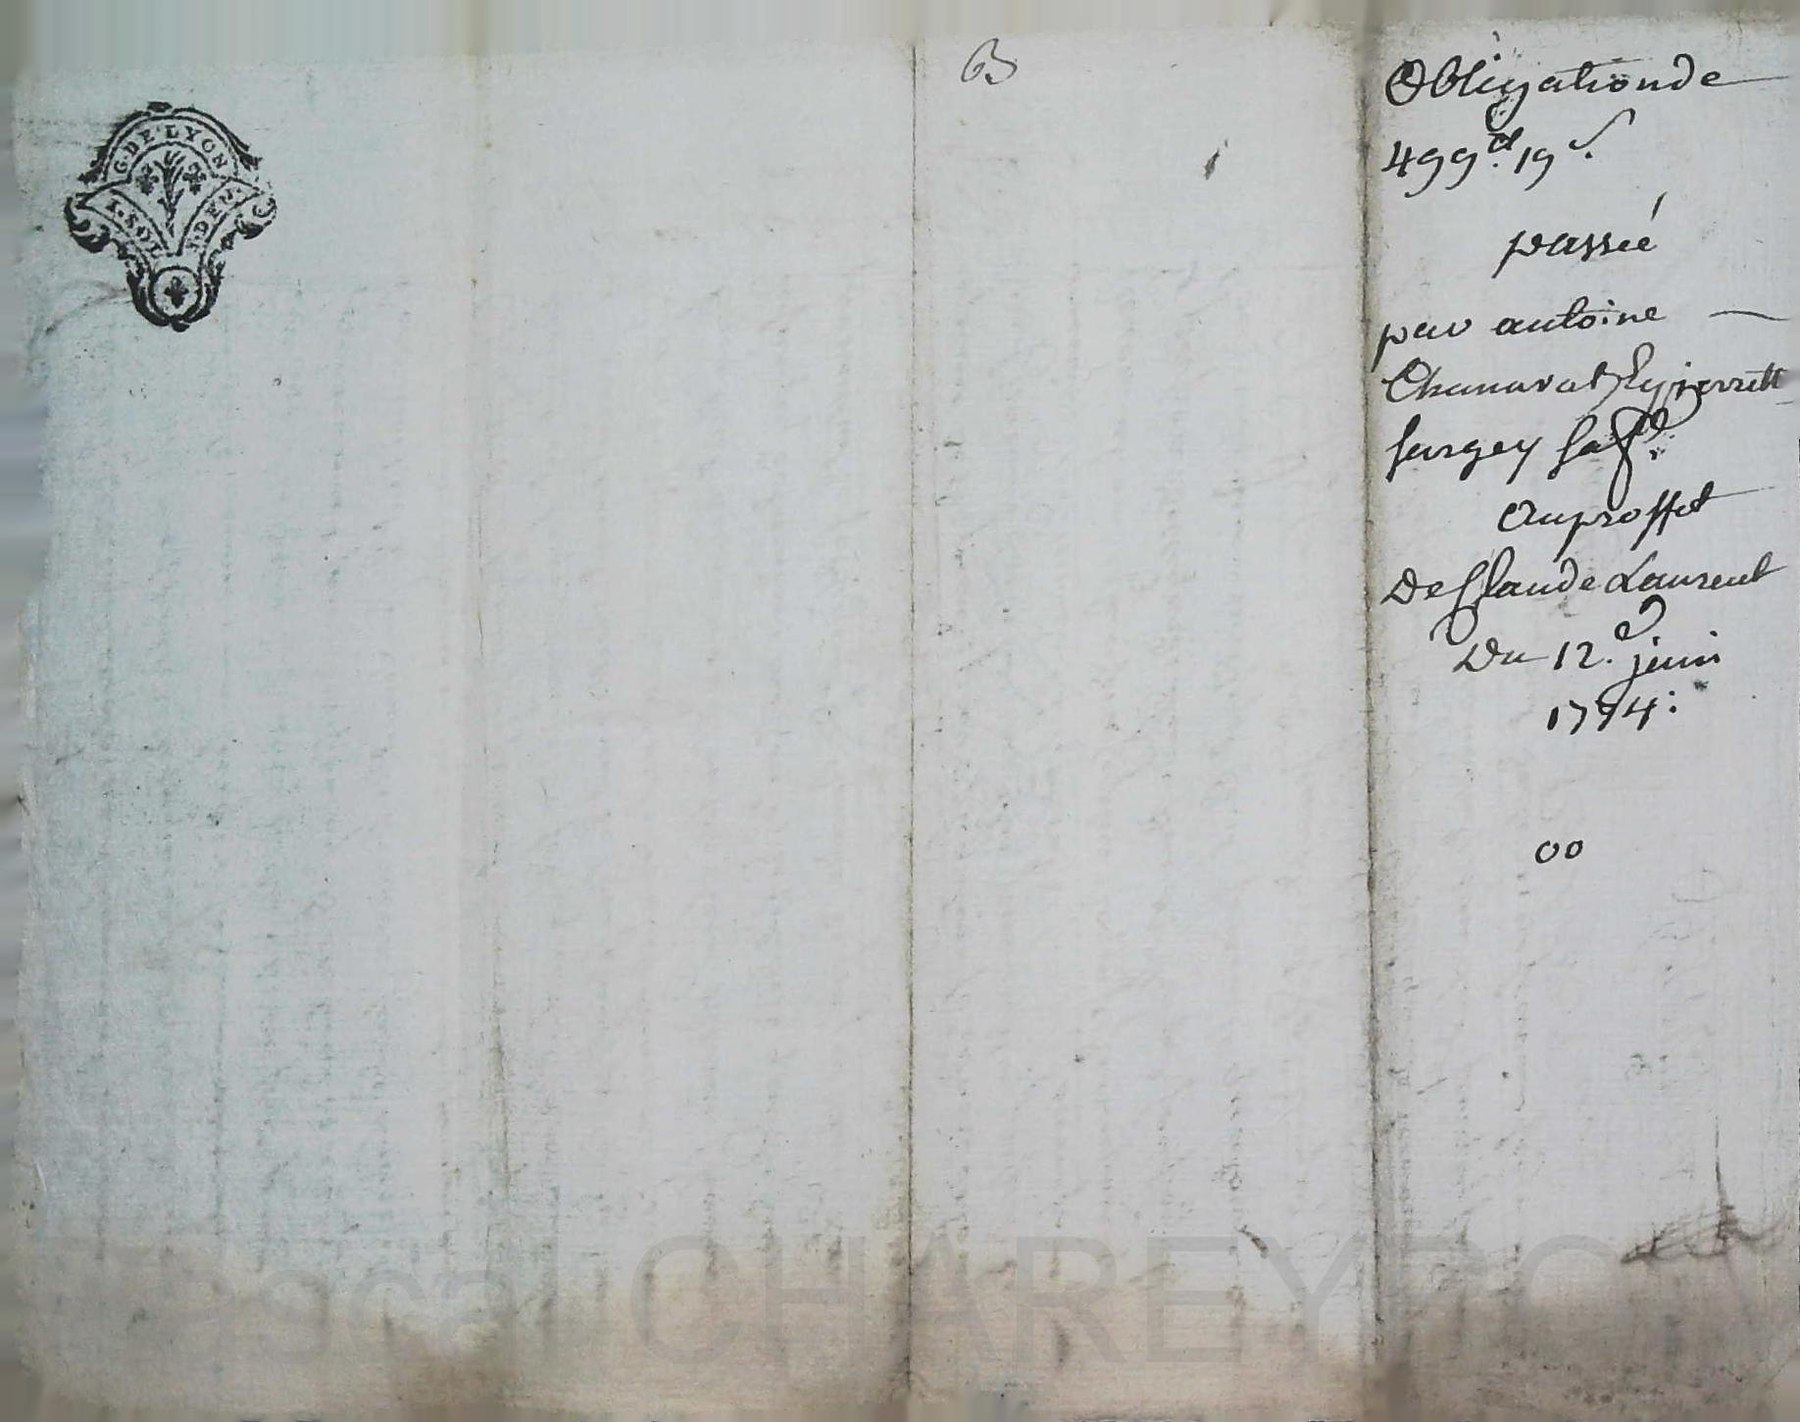 G. DE LYON
63
Obligation de
499ᵗ 19ˢ.
passée
par antoine
Chanavat & pierrette
fargey Sa fᵉ.
Au proffit
De Claude Laurent
Du 12.ᵉ juin
1774:
00
CHAREYRO